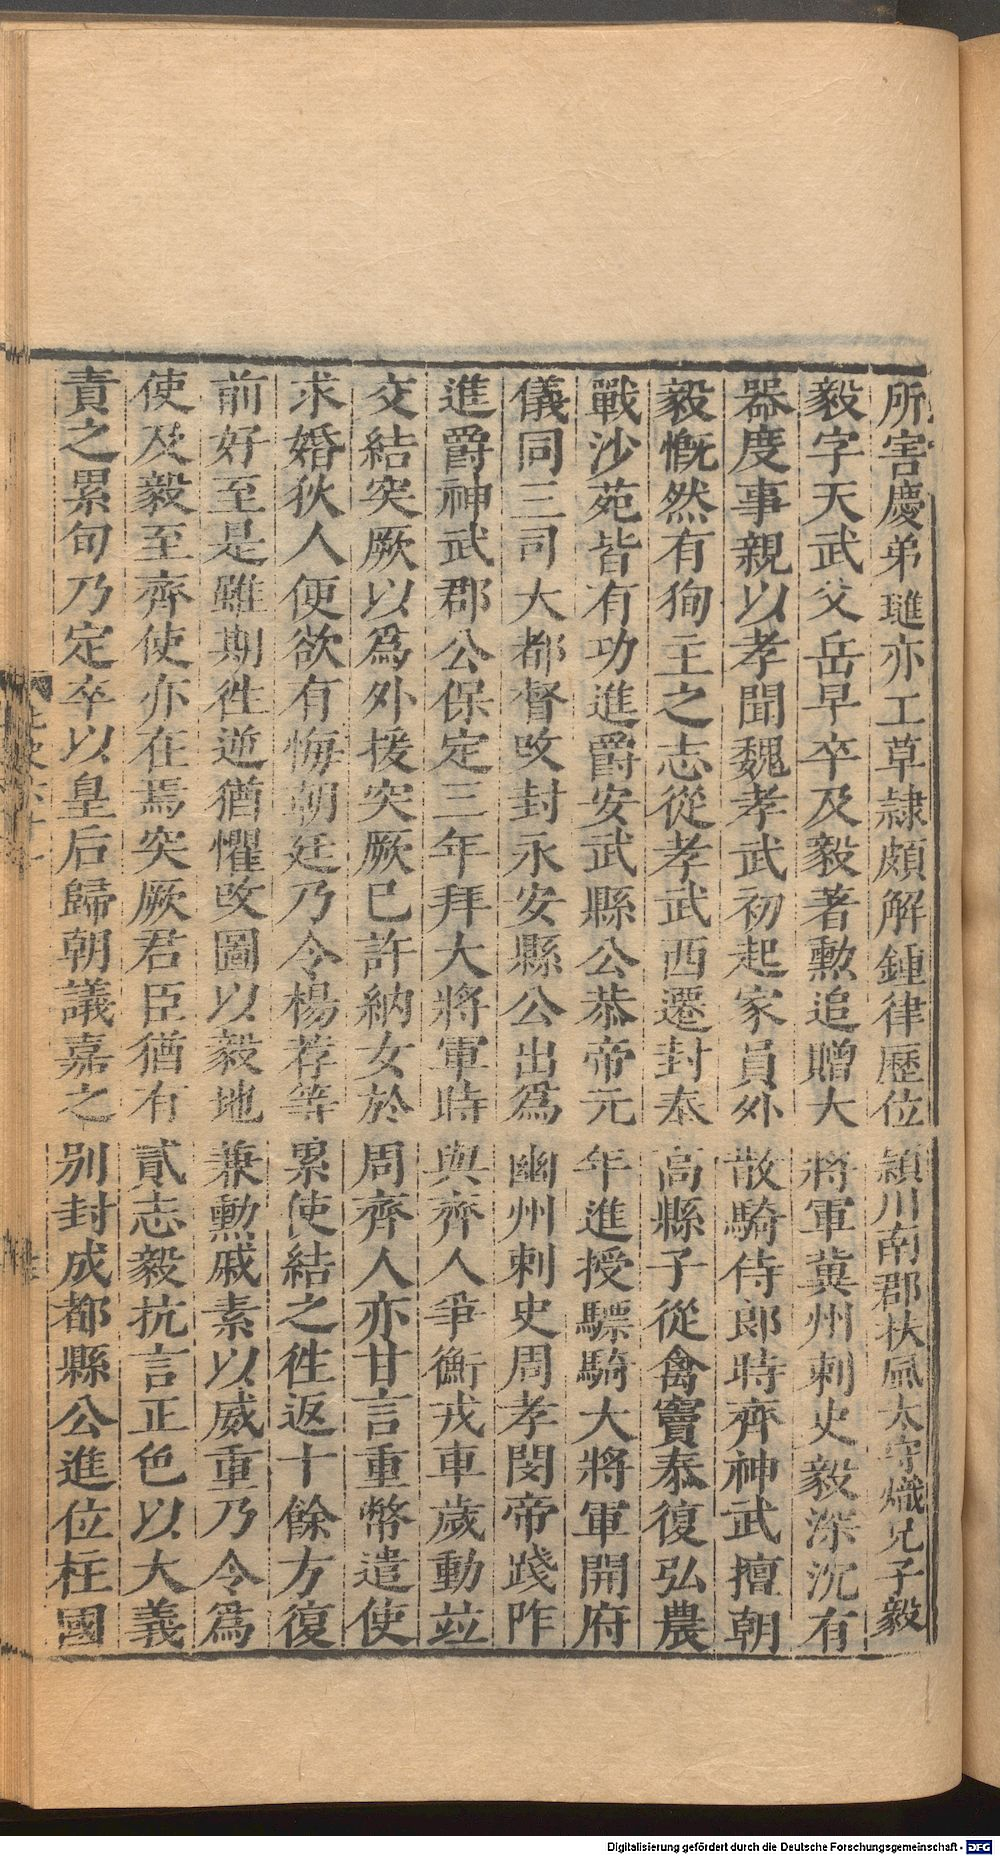 所害慶弟璡亦工草隷頗解鍾律歷位潁川南郡扶風太守熾兄子毅
毅字天武父岳早卒及毅著勲追贈大將軍冀州刺史毅深沉有
器度事親以孝聞魏孝武初起家員外散騎侍郎時齊神武擅朝
毅慨然有狥主之志從孝武西遷封奉高縣子從禽竇泰復弘農
戰沙苑皆有功進爵安武縣公恭帝元年進授驃騎大將軍開府
儀同三司大都督攺封永安縣公出爲幽州刺史周孝閔帝踐阼
進爵神武郡公保定三年拜大將軍時與齊人爭衡戎車歳動竝
交結突厥以爲外援突厥已許納女於周齊人亦甘言重幣遣使
求婚狄人便欲有悔朝廷乃令楊荐等累使結之徃返十餘方復
前好至是雖期徃逆猶懼攺圖以毅地兼勲戚素以威重乃令爲
使及毅至齊使亦在焉突厥君臣猶有貳志毅抗言正色以大義
責之累旬乃定卒以皇后歸朝議嘉之别封成都縣公進位柱國
Digitalisierung gefördert durch die Deutsche Forschungsgemeinschaft - DFG